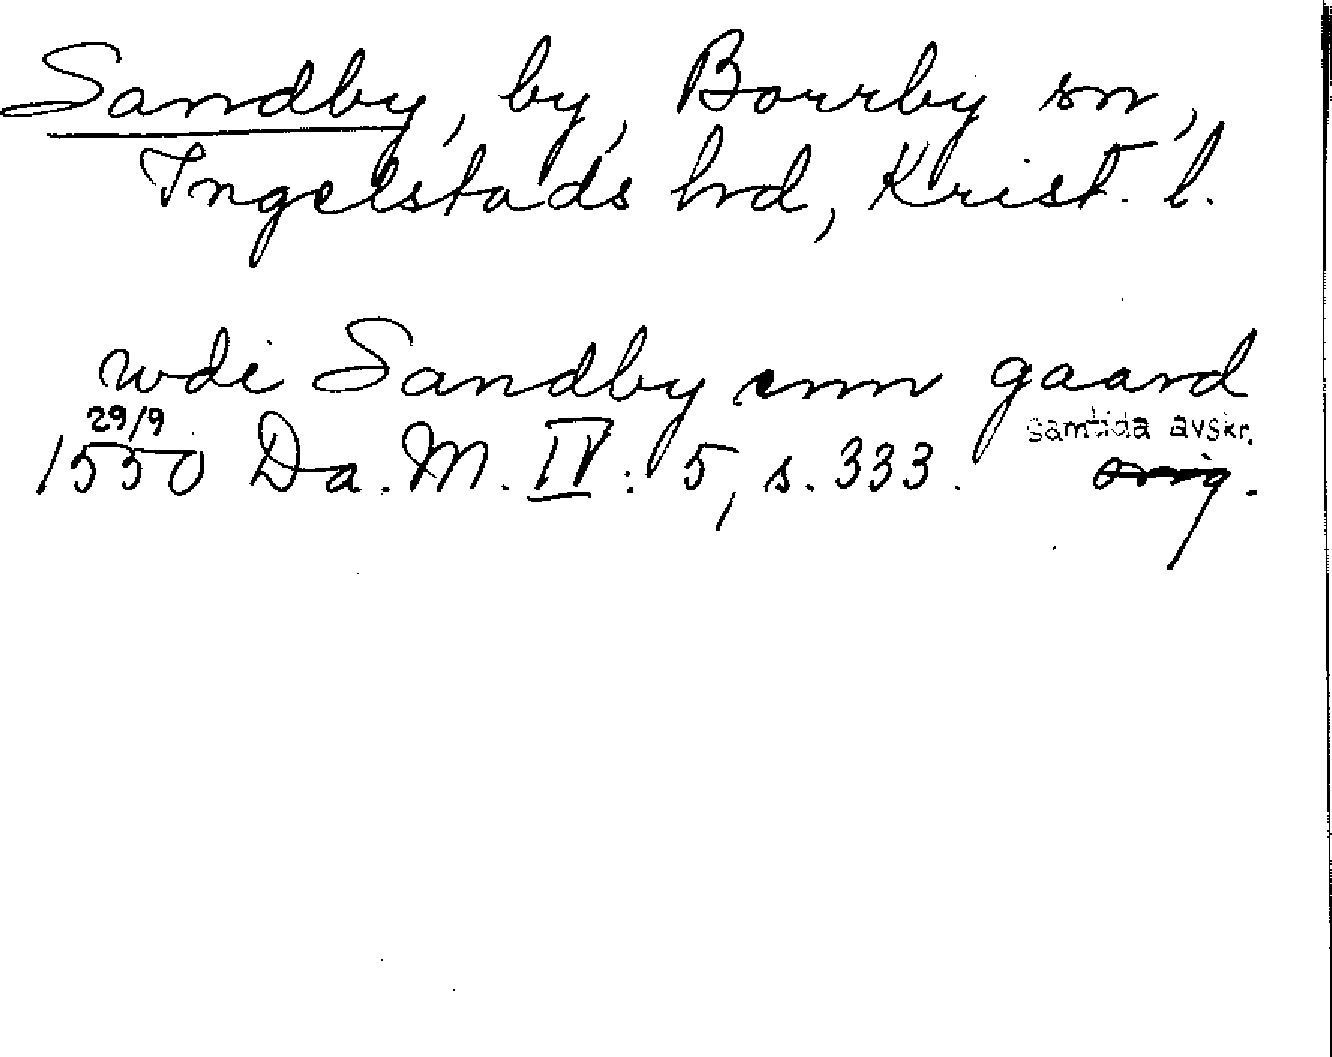 Sandby, by, Borrby sn,
Ingelstads hrd, Krist. l.
wdi Sandby enn gaard
29/9 samtida avskr.
1550 Da. M. IV: 5, s. 333. orig.